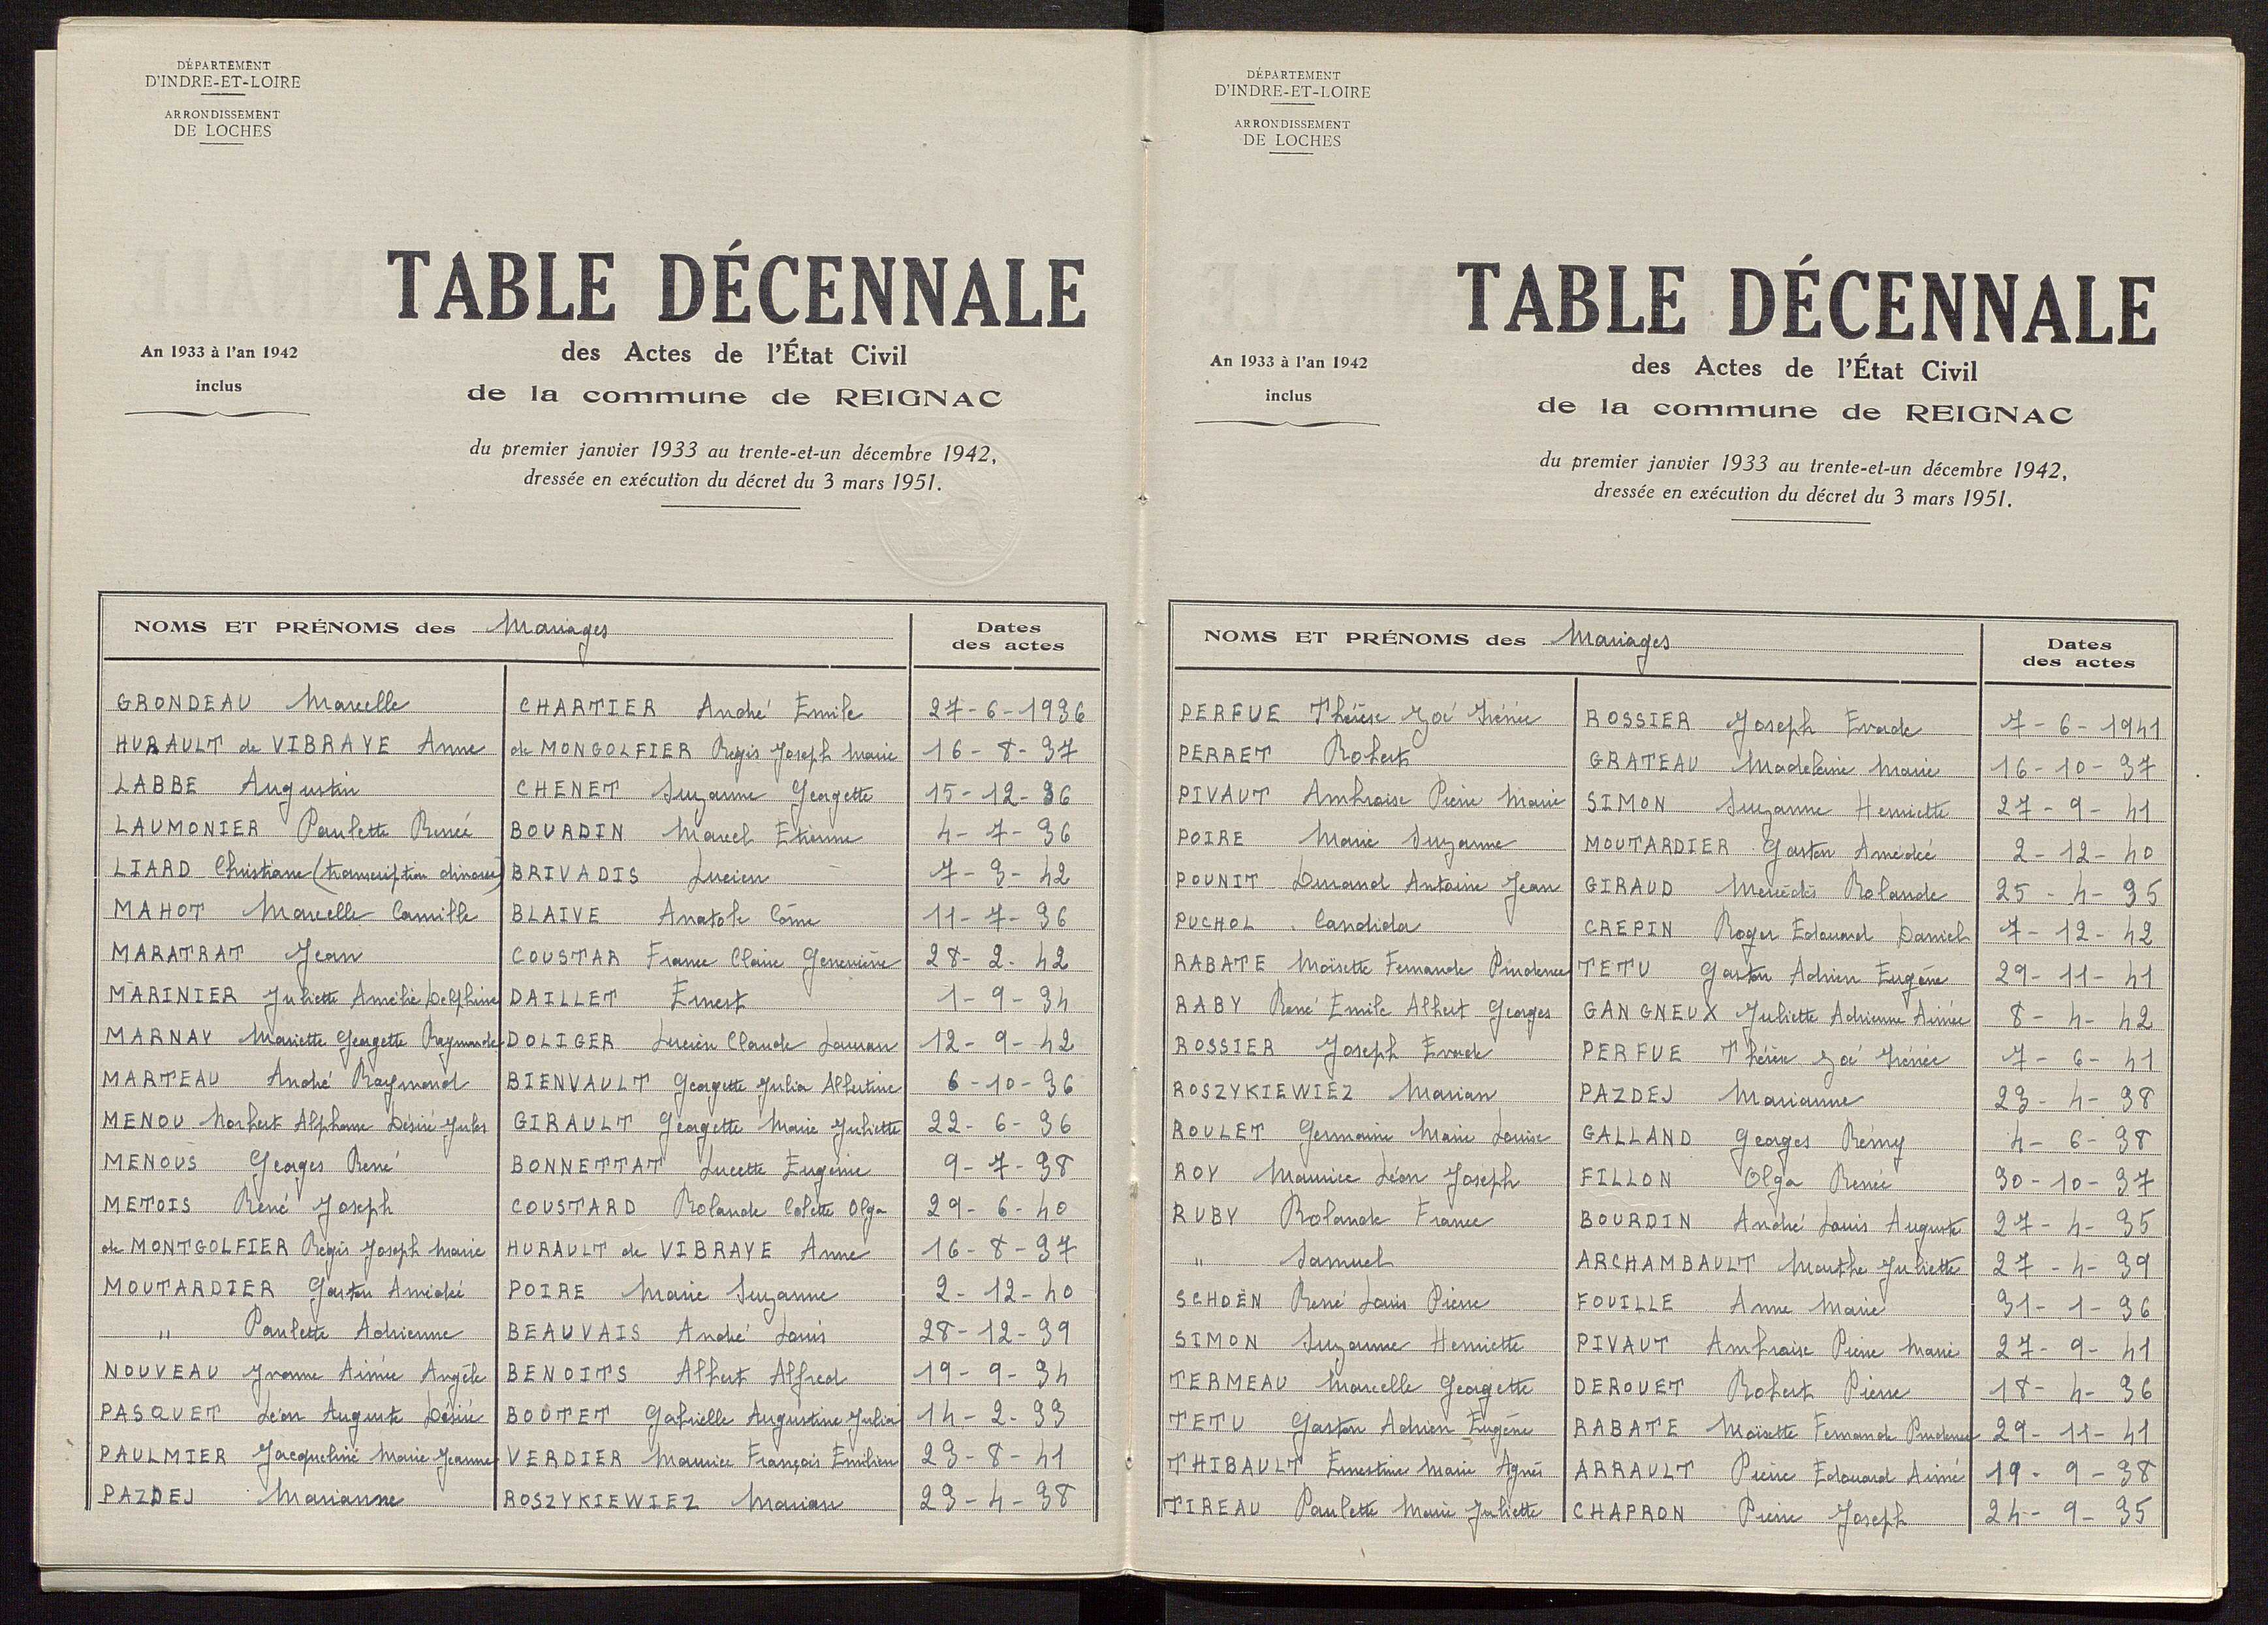 DÉPARTEMENT
D'INDRE-ET-LOIRE
ARRONDISSEMENT
DE LOCHES
TABLE DÉCENNALE
An 1933 à l'an 1942
inclus
des Actes de l'État Civil
de la commune de REIGNAC
du premier janvier 1933 au trente-et-un décembre 1942,
dressée en exécution du décret du 3 mars 1951.
NOMS ET PRÉNOMS des Mariages Dates des actes
GRONDEAU Marcelle CHARTIER André Emile 27-6-1936
HURAULT de VIBRAYE Anne de MONGOLFIER Régis Joseph Marie 16-8-37
LABBE Augustin CHENET Suzanne Georgette 15-12-36
LAUMONIER Paulette Renée BOURDIN Marcel Etienne 4-7-36
LIARD Christiane (transcription divorce) BRIVADIS Lucien 7-3-42
MAHOT Marcelle Camille BLAIVE Anatole Côme 11-7-36
MARATRAT Jean COUSTAR France Claire Geneviève 28-2-42
MARINIER Juliette Amélie Delphine DAILLET Ernest 1-9-34
MARNAY Mariette Georgette Raymonde DOLIGER Lucien Claude 12-9-42
MARTEAU André Raymond BIENVAULT Georgette Julia Albertine 6-10-36
MENOU Norbert Alphonse Désiré Jules GIRAULT Georgette Marie Juliette 22-6-36
MENOUS Georges René BONNETTAT Lucette Eugénie 9-7-38
METOIS René Joseph COUSTARD Rolande Colette Olga 29-6-40
de MONTGOLFIER Régis Joseph Marie HURAULT de VIBRAYE Anne 16-8-37
MOUTARDIER Gaston Amédée POIRE Marie Suzanne 2-12-40
" Paulette Adrienne BEAUVAIS André Louis 28-12-39
NOUVEAU Yvonne Aimée Angèle BENOITS Albert Alfred 19-9-34
PASQUET Léon Auguste Désiré BOUTET Gabrielle Augustine Julia 14-2-33
PAULMIER Jacqueline Marie Jeanne VERDIER Maurice François Emilien 23-8-41
PAZDEJ Marianne ROSZYKIEWIEZ Marian 23-4-38
DÉPARTEMENT
D'INDRE-ET-LOIRE
ARRONDISSEMENT
DE LOCHES
TABLE DÉCENNALE
An 1933 à l'an 1942
inclus
des Actes de l'État Civil
de la commune de REIGNAC
du premier janvier 1933 au trente-et-un décembre 1942,
dressée en exécution du décret du 3 mars 1951.
NOMS ET PRÉNOMS des Mariages Dates des actes
PERFUE Thérèse Zoé Irénée ROSSIER Joseph Evrade 7-6-1941
PERRET Robert GRATEAU Madeleine Marie 16-10-37
PIVAUT Ambroise Pierre Marie SIMON Suzanne Henriette 27-9-41
POIRE Marie Suzanne MOUTARDIER Gaston Amédée 2-12-40
POUNIT Durand Antoine Jean GIRAUD Mercédès Rolande 25-4-35
PUCHOL Candida CREPIN Roger Edouard Daniel 7-12-42
RABATE Moïsette Fernande Prudence TETU Gaston Adrien Eugène 29-11-41
RABY René Emile Albert Georges GANGNEUX Juliette Adrienne Aimée 8-4-42
ROSSIER Joseph Evrade PERFUE Thérèse Zoé Irénée 7-6-41
ROSZYKIEWIEZ Marian PAZDEJ Marianne 23-4-38
ROULET Germaine Marie Louise GALLAND Georges Rémy 4-6-38
ROY Maurice Léon Joseph FILLON Olga Renée 30-10-37
RUBY Rolande France BOURDIN André Louis Auguste 27-4-35
" Samuel ARCHAMBAULT Marthe Juliette 27-4-39
SCHOËN René Louis Pierre FOUILLE Anne Marie 31-1-36
SIMON Suzanne Henriette PIVAUT Ambroise Pierre Marie 27-9-41
TERMEAU Marcelle Georgette DEROUET Robert Pierre 18-4-36
TETU Gaston Adrien Eugène RABATE Moïsette Fernande Prudence 29-11-41
THIBAULT Ernestine Marie Agnès ARRAULT Pierre Edouard Aimé 19-9-38
TIREAU Paulette Marie Juliette CHAPRON Pierre Joseph 24-9-35